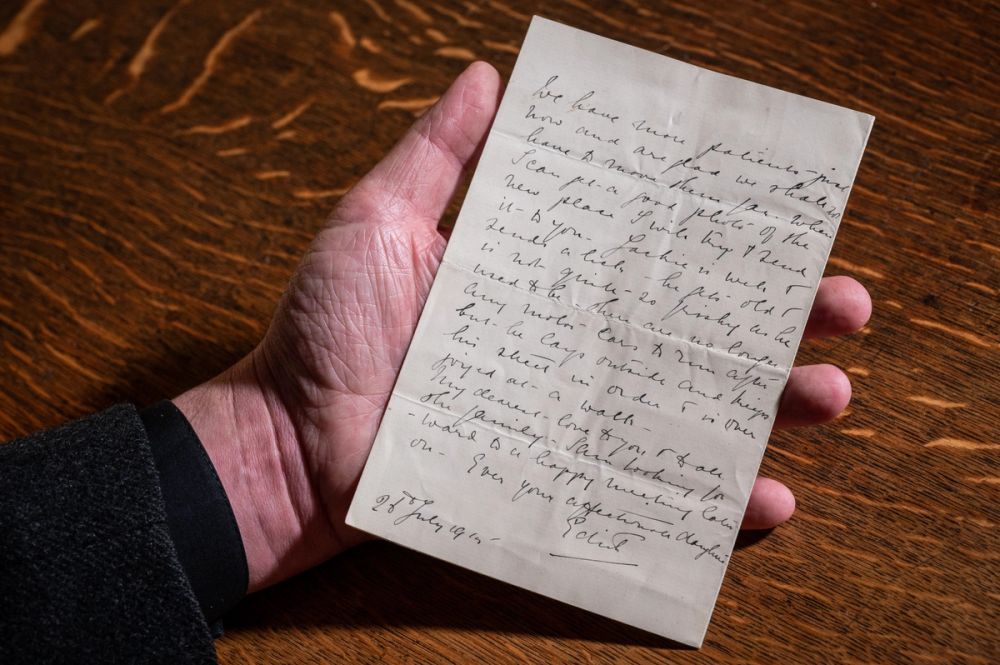 We have more patients just
now and are glad we shall not
have to move them far. When
I can get a good photo of the
new place I will try & send
it to you. Jackie is well &
sends a lick. He gets old &
is not quite so frisky as he
used to be. There are no longer
any motor cars to run after
but he lays outside and keeps
his street in order & is over
joyed at a walk.
My dearest love to you & to all
the family. Still looking for
-ward to a happy meeting later
on. Ever your affectionate daughter
Edith
28th July 1915